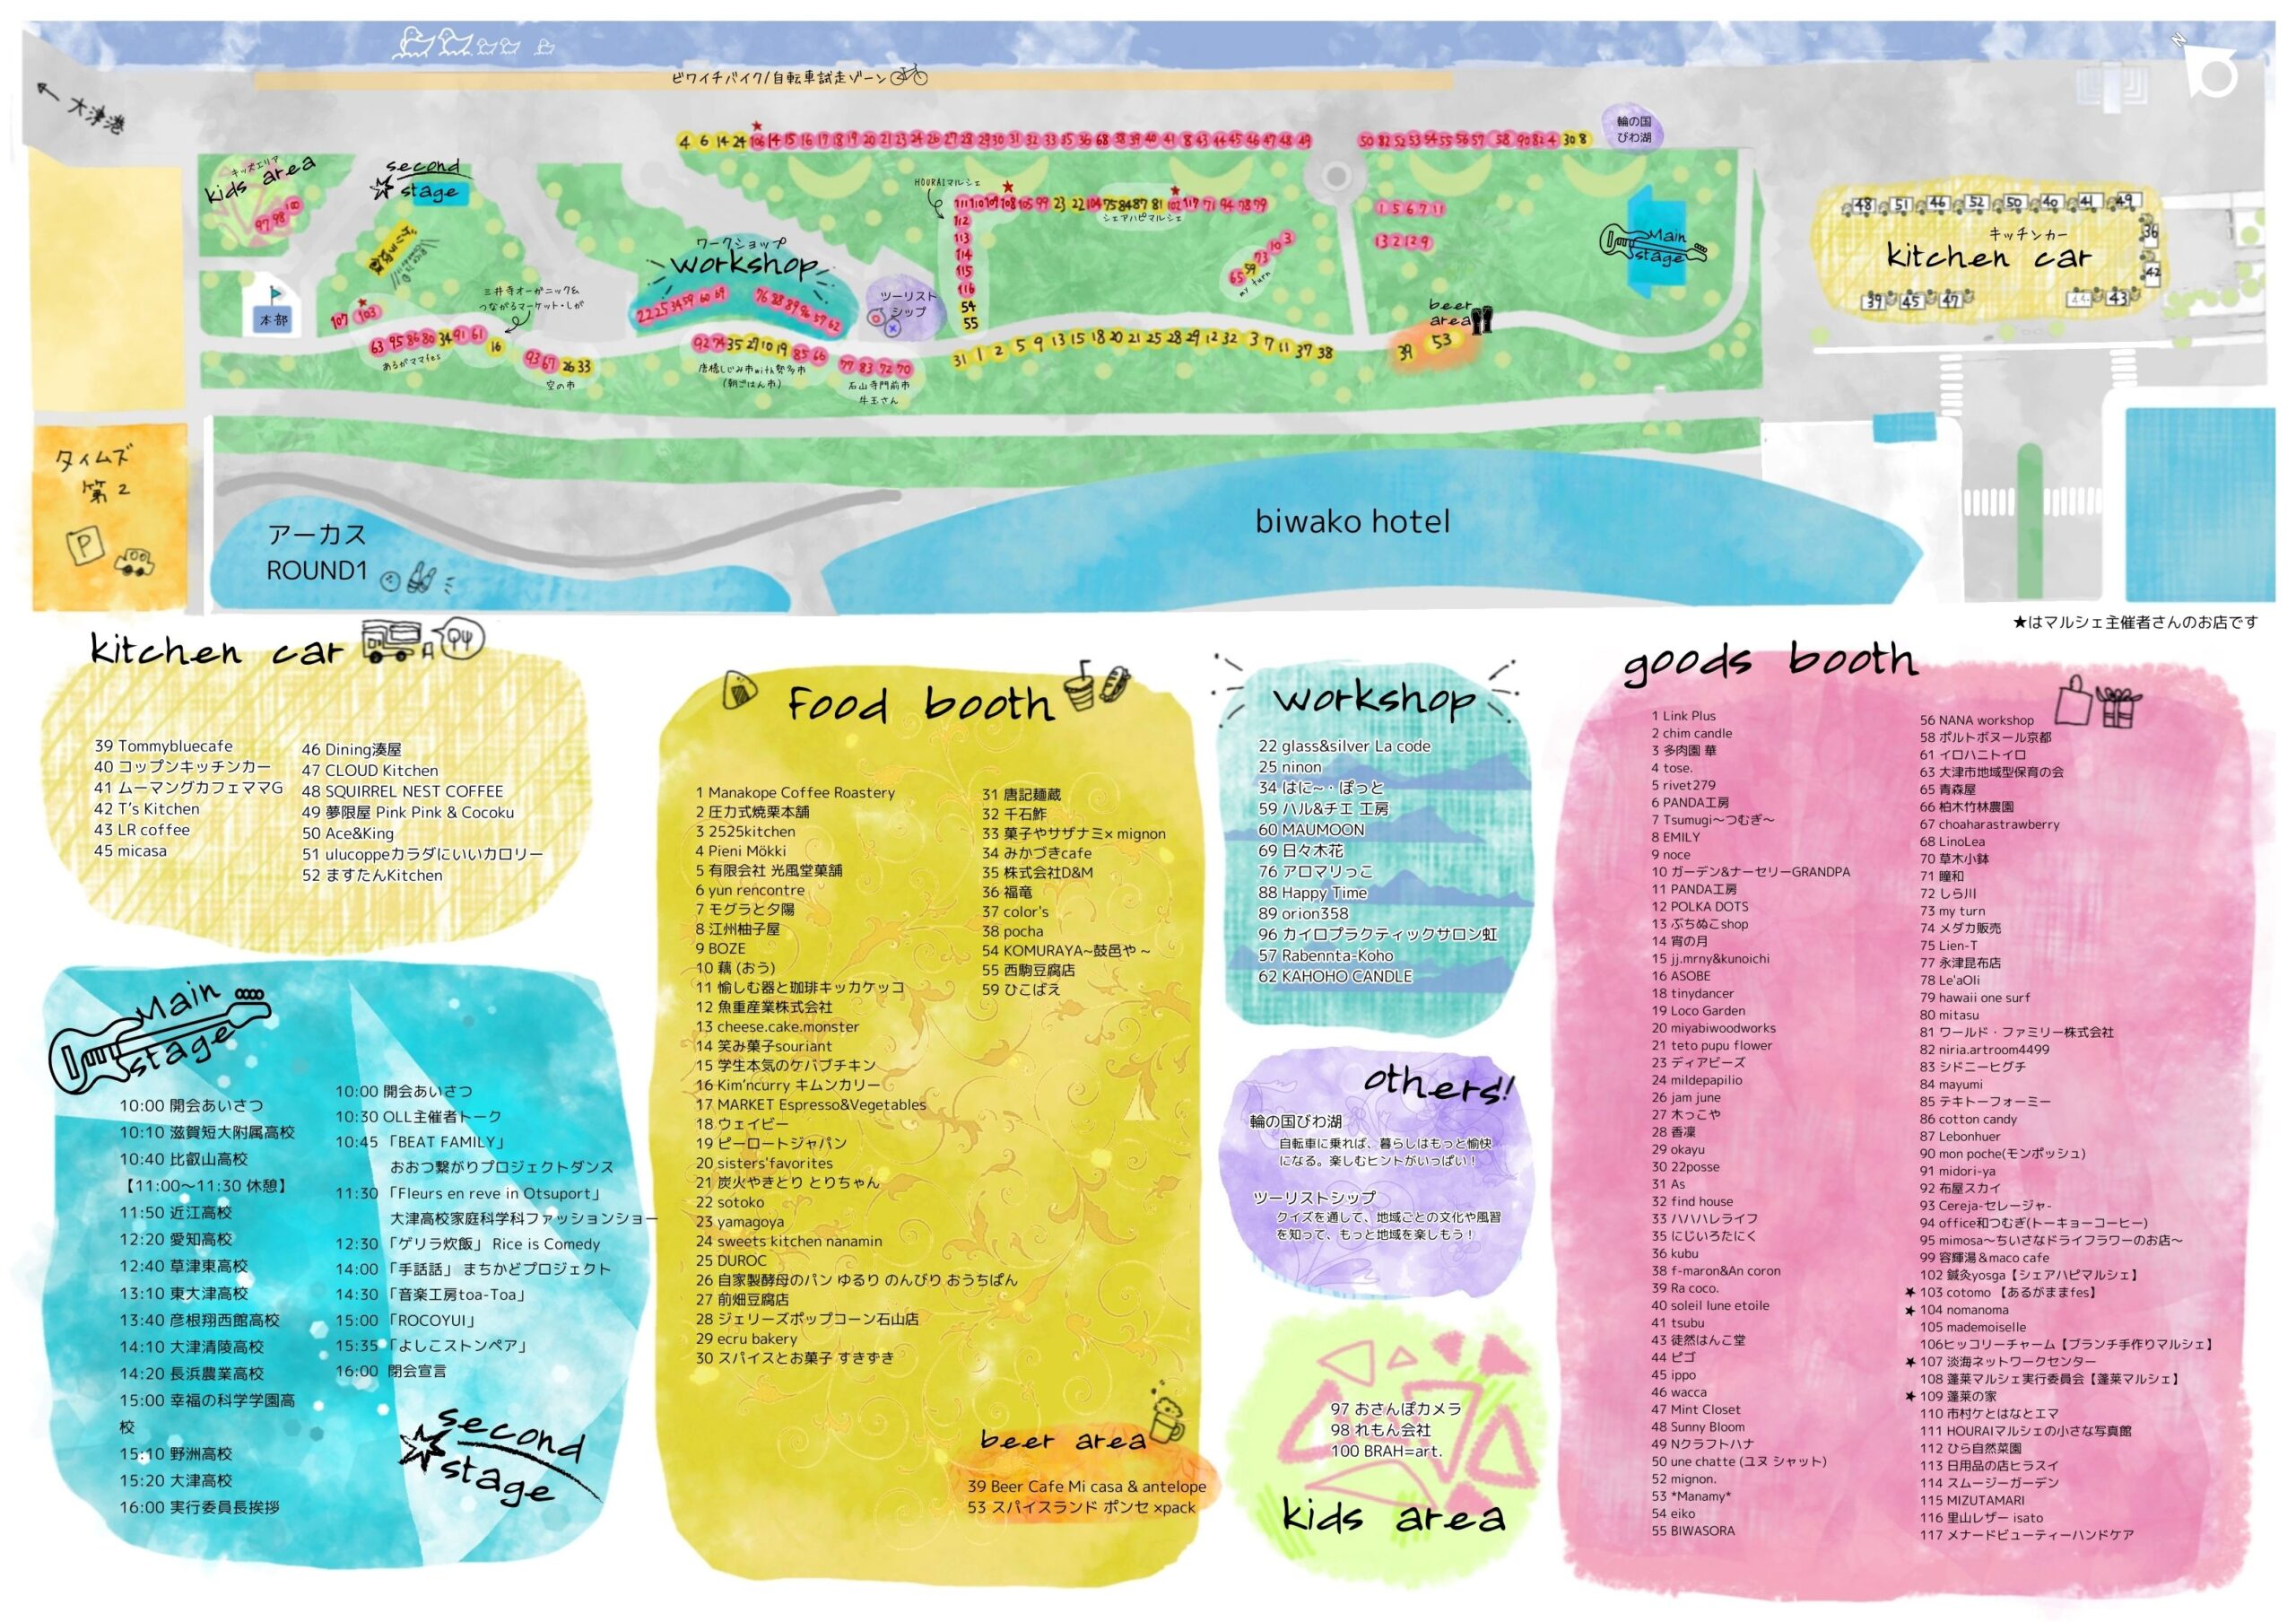 ビワイチバイク/自転車試走ゾーン
← 大津港
N
4 6 14 24 106 14 15 16 17 18 19 20 21 23 24 26 27 28 29 30 31 32 33 35 36 68 38 39 40 41 8 43 44 45 46 47 48 49
50 82 52 53 54 55 56 57 58 90 82 4 30 8
輪の国
びわ湖
キッズエリア
kids area
97 98 100
second
stage
本部
107 103
三井寺オーガニック&
つながるマーケット・しが
63 95 86 80 34 91 61
16
あるがママfes
93 67 26 33
空の市
ワークショップ
workshop
22 25 34 59 60 69
76 88 89 96 57 62
ツーリスト
シップ
92 74 35 27 10 19 85 66
唐橋しじみ市with勢多市
(朝ごはん市)
77 83 72 70
石山寺門前市
牛玉さん
HOURAIマルシェ
111 110 109 108 105 99 23 22 104 75 84 87 81 102 117 71 94 78 79
シェアハピマルシェ
112
113
114
115
116
54
55
65 59 73 10 3
my turn
1 5 6 7 11
13 2 12 9
31 1 2 5 9 13 15 18 20 21 25 28 29 12 32 3 7 11 37 38
beer
area
39 53
Main
stage
48 51 46 52 50 40 41 49
36
42
キッチンカー
kitchen car
39 45 47
44 43
タイムズ
第2
P
アーカス
ROUND1
biwako hotel
★はマルシェ主催者さんのお店です
kitchen car
39 Tommybluecafe
40 コップンキッチンカー
41 ムーマングカフェママG
42 T's Kitchen
43 LR coffee
45 micasa
46 Dining湊屋
47 CLOUD Kitchen
48 SQUIRREL NEST COFFEE
49 夢限屋 Pink Pink & Cocoku
50 Ace&King
51 ulucoppeカラダにいいカロリー
52 ますたんKitchen
Main
stage
10:00 開会あいさつ
10:10 滋賀短大附属高校
10:40 比叡山高校
【11:00〜11:30 休憩】
11:50 近江高校
12:20 愛知高校
12:40 草津東高校
13:10 東大津高校
13:40 彦根翔西館高校
14:10 大津清陵高校
14:20 長浜農業高校
15:00 幸福の科学学園高
校
15:10 野洲高校
15:20 大津高校
16:00 実行委員長挨拶
10:00 開会あいさつ
10:30 OLL主催者トーク
10:45 「BEAT FAMILY」
おおつ繋がりプロジェクトダンス
11:30 「Fleurs en reve in Otsuport」
大津高校家庭科学科ファッションショー
12:30 「ゲリラ炊飯」 Rice is Comedy
14:00 「手話話」 まちかどプロジェクト
14:30 「音楽工房toa-Toa」
15:00 「ROCOYUI」
15:35 「よしこストンペア」
16:00 閉会宣言
second
stage
Food booth
1 Manakope Coffee Roastery
2 圧力式焼栗本舗
3 2525kitchen
4 Pieni Mökki
5 有限会社 光風堂菓舗
6 yun rencontre
7 モグラと夕陽
8 江州柚子屋
9 BOZE
10 藕 (おう)
11 愉しむ器と珈琲キッカケッコ
12 魚重産業株式会社
13 cheese.cake.monster
14 笑み菓子souriant
15 学生本気のケバブチキン
16 Kim'ncurry キムンカリー
17 MARKET Espresso&Vegetables
18 ウェイビー
19 ピーロートジャパン
20 sisters'favorites
21 炭火やきとり とりちゃん
22 sotoko
23 yamagoya
24 sweets kitchen nanamin
25 DUROC
26 自家製酵母のパン ゆるり のんびり おうちぱん
27 前畑豆腐店
28 ジェリーズポップコーン石山店
29 ecru bakery
30 スパイスとお菓子 すきずき
31 唐記麺蔵
32 千石鮓
33 菓子やサザナミ× mignon
34 みかづきcafe
35 株式会社D&M
36 福竜
37 color's
38 pocha
54 KOMURAYA~鼓邑や ~
55 西駒豆腐店
59 ひこばえ
beer area
39 Beer Cafe Mi casa & antelope
53 スパイスランド ポンセ ×pack
workshop
22 glass&silver La code
25 ninon
34 はに~・ぽっと
59 ハル&チエ 工房
60 MAUMOON
69 日々木花
76 アロマリっこ
88 Happy Time
89 orion358
96 カイロプラクティックサロン虹
57 Rabennta-Koho
62 KAHOHO CANDLE
others!
輪の国びわ湖
自転車に乗れば、暮らしはもっと愉快
になる。楽しむヒントがいっぱい！
ツーリストシップ
クイズを通して、地域ごとの文化や風習
を知って、もっと地域を楽しもう！
97 おさんぽカメラ
98 れもん会社
100 BRAH=art.
kids area
goods booth
1 Link Plus
2 chim candle
3 多肉園 華
4 tose.
5 rivet279
6 PANDA工房
7 Tsumugi〜つむぎ〜
8 EMILY
9 noce
10 ガーデン&ナーセリーGRANDPA
11 PANDA工房
12 POLKA DOTS
13 ぶちぬこshop
14 宵の月
15 jj.mrny&kunoichi
16 ASOBE
18 tinydancer
19 Loco Garden
20 miyabiwoodworks
21 teto pupu flower
23 ディアビーズ
24 mildepapilio
26 jam june
27 木っこや
28 香凜
29 okayu
30 22posse
31 As
32 find house
33 ハハハレライフ
35 にじいろたにく
36 kubu
38 f-maron&An coron
39 Ra coco.
40 soleil lune etoile
41 tsubu
43 徒然はんこ堂
44 ピゴ
45 ippo
46 wacca
47 Mint Closet
48 Sunny Bloom
49 Nクラフトハナ
50 une chatte (ユヌ シャット)
52 mignon.
53 *Manamy*
54 eiko
55 BIWASORA
56 NANA workshop
58 ポルトボヌール京都
61 イロハニトイロ
63 大津市地域型保育の会
65 青森屋
66 柏木竹林農園
67 choaharastrawberry
68 LinoLea
70 草木小鉢
71 瞳和
72 しら川
73 my turn
74 メダカ販売
75 Lien-T
77 永津昆布店
78 Le'aOli
79 hawaii one surf
80 mitasu
81 ワールド・ファミリー株式会社
82 niria.artroom4499
83 シドニーヒグチ
84 mayumi
85 テキトーフォーミー
86 cotton candy
87 Lebonhuer
90 mon poche(モンポッシュ)
91 midori-ya
92 布屋スカイ
93 Cereja-セレージャ-
94 office和つむぎ(トーキョーコーヒー)
95 mimosa〜ちいさなドライフラワーのお店〜
99 容輝湯＆maco cafe
102 鍼灸yosga【シェアハピマルシェ】
★ 103 cotomo 【あるがままfes】
★ 104 nomanoma
105 mademoiselle
106ヒッコリーチャーム【ブランチ手作りマルシェ】
★ 107 淡海ネットワークセンター
108 蓬莱マルシェ実行委員会【蓬莱マルシェ】
★ 109 蓬莱の家
110 市村ケとはなとエマ
111 HOURAIマルシェの小さな写真館
112 ひら自然菜園
113 日用品の店ヒラスイ
114 スムージーガーデン
115 MIZUTAMARI
116 里山レザー isato
117 メナードビューティーハンドケア